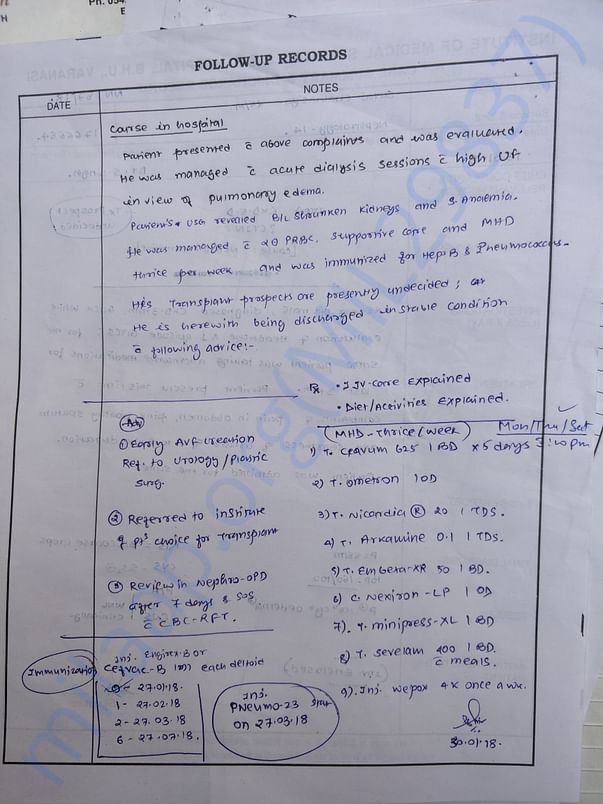 FOLLOW-UP RECORDS
DATE
NOTES
Course in hospital
Patient presented c̄ above complaints and was evaluated.
He was managed c̄ acute dialysis sessions c̄ high UF
in view of pulmonary edema.
Patient's USG revealed B/L Shrunken kidneys and S. Anaemia.
He was managed c̄ 2 PRBC, supportive care and MHD
thrice per week and was immunized for Hep-B & Pneumococcus.
His Transplant prospects are presently undecided;
He is herewith being discharged in stable condition
c̄ following advice:-
Rx
• IJV-care Explained
• Diet/Activities Explained.
Adv
(MHD-Thrice/week)
Mon/Thu/Sat
3:20 pm
① Early AVF creation
Ref. to Urology/Plastic
Surg.
② Referred to institute
of pt's choice for Transplant
③ Review in Nephro-OPD
after 7 days & SOS
c̄ CBC-RFT.
1) T. Ceavum 625 1 BD x 5 days
2) T. Ometron 1 OD
3) T. Nicardia (R) 20 1 TDS.
4) T. Arkamine 0.1 1 TDS.
5) T. Embeta-XR 50 1 BD.
6) C. Nexiron-LP 1 OD
7). T. minipress-XL 1 BD
8) T. Sevelam 400 1 BD.
c̄ meals.
9). Inj. wepox 4K once a wk.
30.01.18.
Immunization
Inj. Engirex-B or
Gevac-B 1ml each deltoid
0- 27.01.18.
1- 27.02.18
2- 27.03.18
6- 27.07.18.
Inj.
PNEUMO-23 stat
on 27.03.18
milaap.org(MIL29837)